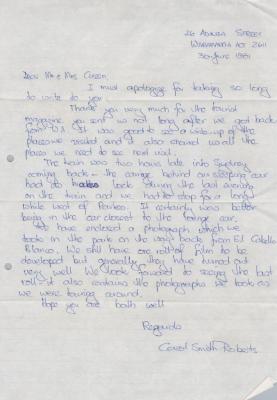 26 ADINDA STREET
WARAMANGA ACT 2611
30 June 1981
Dear Mr & Mrs Cusson,
I must apologise for taking so long
to write to you.
Thank you very much for the tourist
magazine you sent us not long after we got back
from W.A. It was good to see a write-up of the
places we visited and it also showed us all the
places we need to see next visit.
The train was two hours late into Sydney
coming back - the carriage behind our sleeping car
had its brakes lock during the last evening
on the train and we had to stop for a long
while west of Parkes. It certainly was better
being in the car closest to the lounge car.
We have enclosed a photograph which we
took in the park on the way back from El Caballo
Blanco. We still have one roll of film to be
developed but generally they have turned out
very well. We look forward to seeing the last
roll - it also contains the photographs we took as
we were touring around.
Hope you are both well
Regards
Carol Smith Roberts